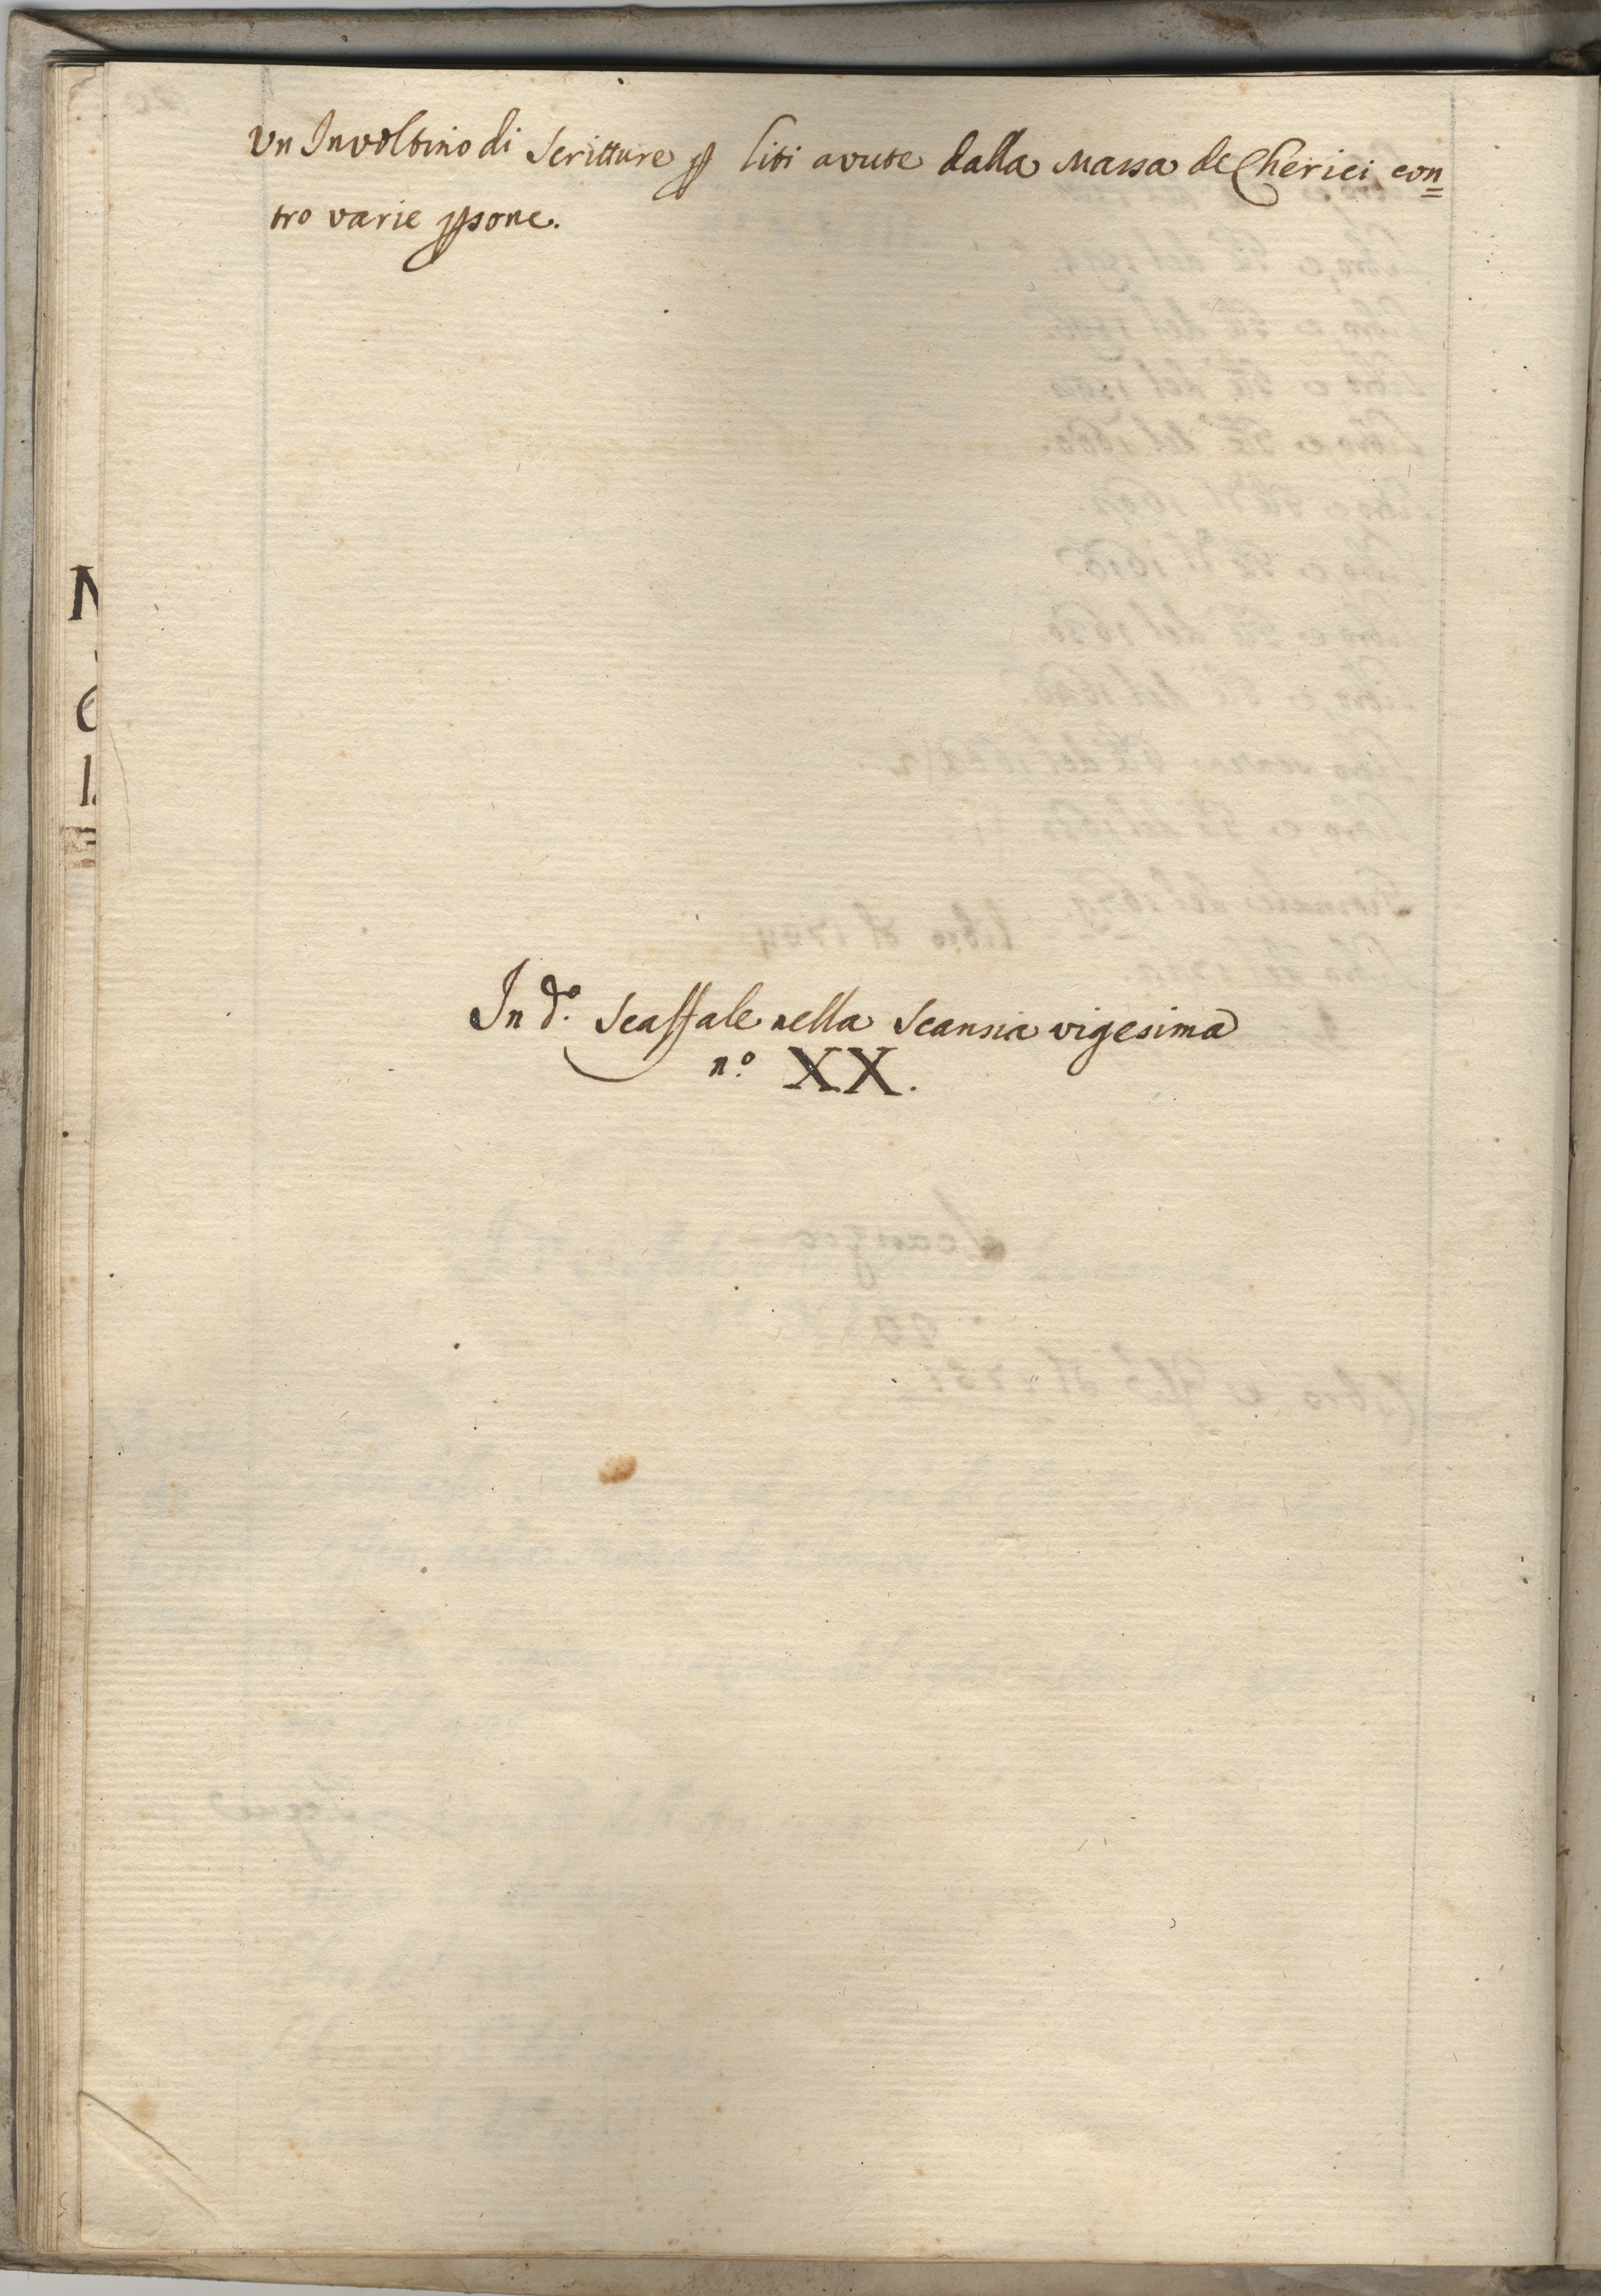 Vn Involtino di Scritture ꝑ liti avute dalla Massa de Cherici con=
tro varie ꝑsone.
In d.º Scaffale nella Scansia vigesima
n.º XX.